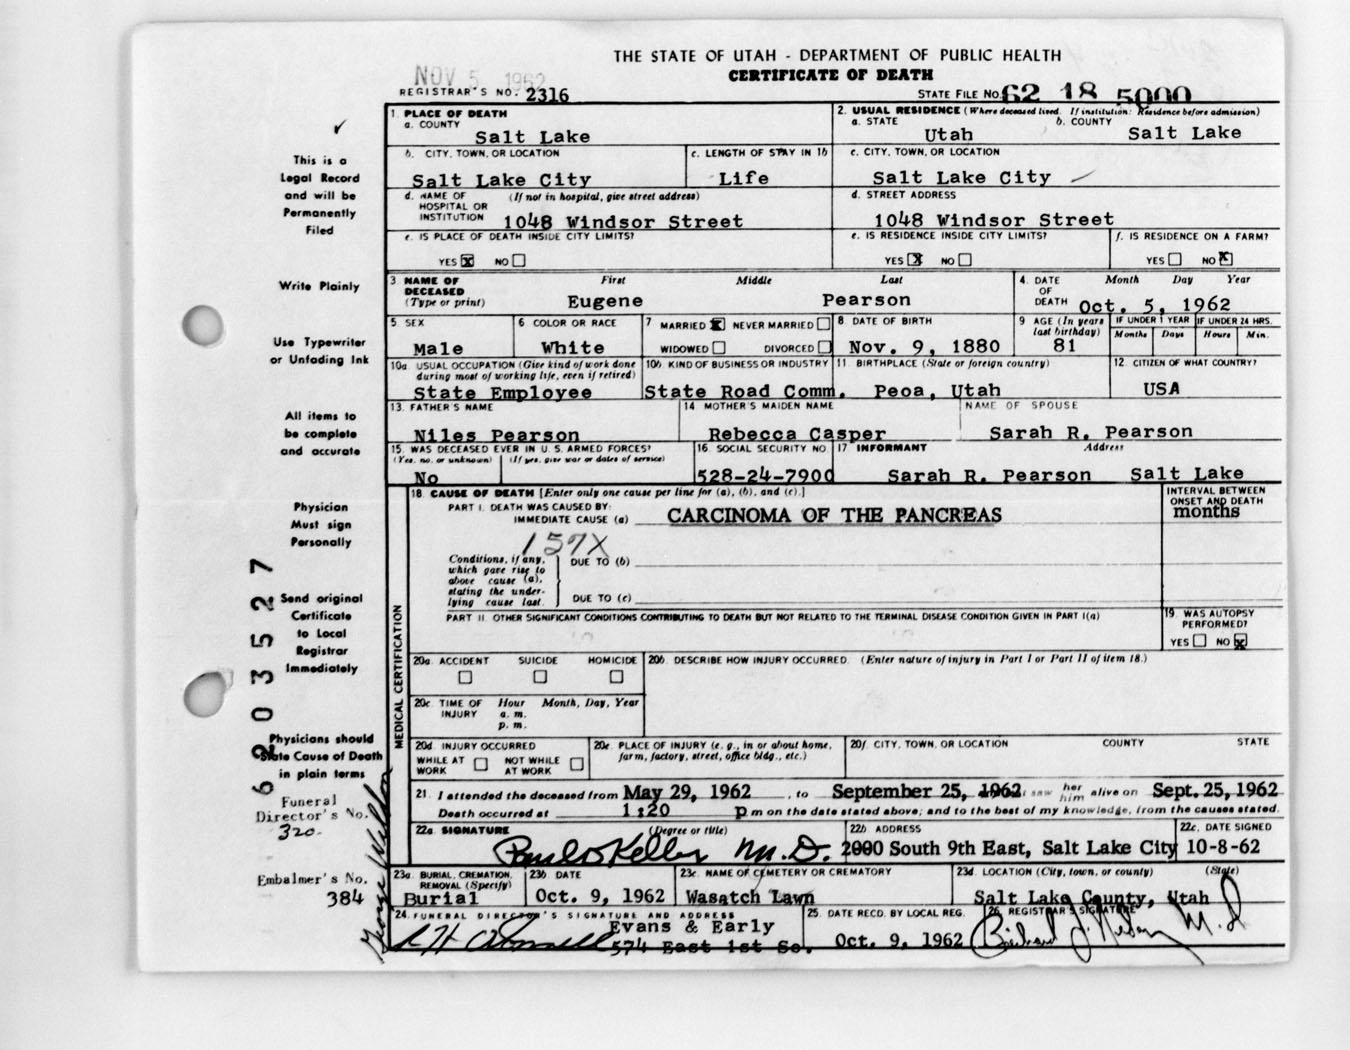 THE STATE OF UTAH - DEPARTMENT OF PUBLIC HEALTH
CERTIFICATE OF DEATH
NOV 5 1962
REGISTRAR'S NO. 2316
STATE FILE NO. 62 18 5000
1. PLACE OF DEATH
a. COUNTY
Salt Lake
2. USUAL RESIDENCE (Where deceased lived. If institution: Residence before admission)
a. STATE b. COUNTY
Utah Salt Lake
b. CITY, TOWN, OR LOCATION
Salt Lake City
c. LENGTH OF STAY IN 1b
Life
c. CITY, TOWN, OR LOCATION
Salt Lake City
d. NAME OF HOSPITAL OR INSTITUTION (If not in hospital, give street address)
1048 Windsor Street
d. STREET ADDRESS
1048 Windsor Street
e. IS PLACE OF DEATH INSIDE CITY LIMITS?
YES X NO
e. IS RESIDENCE INSIDE CITY LIMITS?
YES X NO
f. IS RESIDENCE ON A FARM?
YES NO X
3 NAME OF DECEASED (Type or print)
First Middle Last
Eugene Pearson
4. DATE OF DEATH
Month Day Year
Oct. 5, 1962
5. SEX
Male
6 COLOR OR RACE
White
7 MARRIED X NEVER MARRIED
WIDOWED DIVORCED
8 DATE OF BIRTH
Nov. 9, 1880
9 AGE (In years last birthday)
81
IF UNDER 1 YEAR
Months Days
IF UNDER 24 HRS.
Hours Min.
10a. USUAL OCCUPATION (Give kind of work done during most of working life, even if retired)
State Employee
10b KIND OF BUSINESS OR INDUSTRY
State Road Comm.
11. BIRTHPLACE (State or foreign country)
Peoa, Utah
12. CITIZEN OF WHAT COUNTRY?
USA
13. FATHER'S NAME
Niles Pearson
14 MOTHER'S MAIDEN NAME
Rebecca Casper
NAME OF SPOUSE
Sarah R. Pearson
15. WAS DECEASED EVER IN U.S. ARMED FORCES?
(Yes, no, or unknown) (If yes, give war or dates of service)
No
16. SOCIAL SECURITY NO.
528-24-7900
17 INFORMANT Address
Sarah R. Pearson Salt Lake
MEDICAL CERTIFICATION
18. CAUSE OF DEATH [Enter only one cause per line for (a), (b), and (c).]
PART I. DEATH WAS CAUSED BY:
IMMEDIATE CAUSE (a) CARCINOMA OF THE PANCREAS
INTERVAL BETWEEN ONSET AND DEATH
months
157X
Conditions, if any, which gave rise to above cause (a), stating the underlying cause last.
DUE TO (b)
DUE TO (c)
PART II. OTHER SIGNIFICANT CONDITIONS CONTRIBUTING TO DEATH BUT NOT RELATED TO THE TERMINAL DISEASE CONDITION GIVEN IN PART I(a)
19. WAS AUTOPSY PERFORMED?
YES NO X
20a. ACCIDENT SUICIDE HOMICIDE
20b. DESCRIBE HOW INJURY OCCURRED. (Enter nature of injury in Part I or Part II of item 18.)
20c. TIME OF INJURY Hour Month, Day, Year
a. m.
p. m.
20d. INJURY OCCURRED
WHILE AT WORK NOT WHILE AT WORK
20e. PLACE OF INJURY (e. g., in or about home, farm, factory, street, office bldg., etc.)
20f. CITY, TOWN, OR LOCATION COUNTY STATE
21. I attended the deceased from May 29, 1962, to September 25, 1962 saw her him alive on Sept. 25, 1962
Death occurred at 1:20 p m on the date stated above; and to the best of my knowledge, from the causes stated.
22a. SIGNATURE (Degree or title)
Paul Keller M.D.
22b ADDRESS
2000 South 9th East, Salt Lake City
22c. DATE SIGNED
10-8-62
23a. BURIAL, CREMATION, REMOVAL (Specify)
Burial
23b DATE
Oct. 9, 1962
23c. NAME OF CEMETERY OR CREMATORY
Wasatch Lawn
23d. LOCATION (City, town, or county) (State)
Salt Lake County, Utah
24. FUNERAL DIRECTOR'S SIGNATURE AND ADDRESS
Evans & Early
574 East 1st So.
25. DATE RECD. BY LOCAL REG.
Oct. 9, 1962
26. REGISTRAR'S SIGNATURE
M.D
This is a
Legal Record
and will be
Permanently
Filed
Write Plainly
Use Typewriter
or Unfading Ink
All items to
be complete
and accurate
Physician
Must sign
Personally
Send original
Certificate
to Local
Registrar
Immediately
Physicians should
State Cause of Death
in plain terms
Funeral
Director's No.
320
Embalmer's No.
384